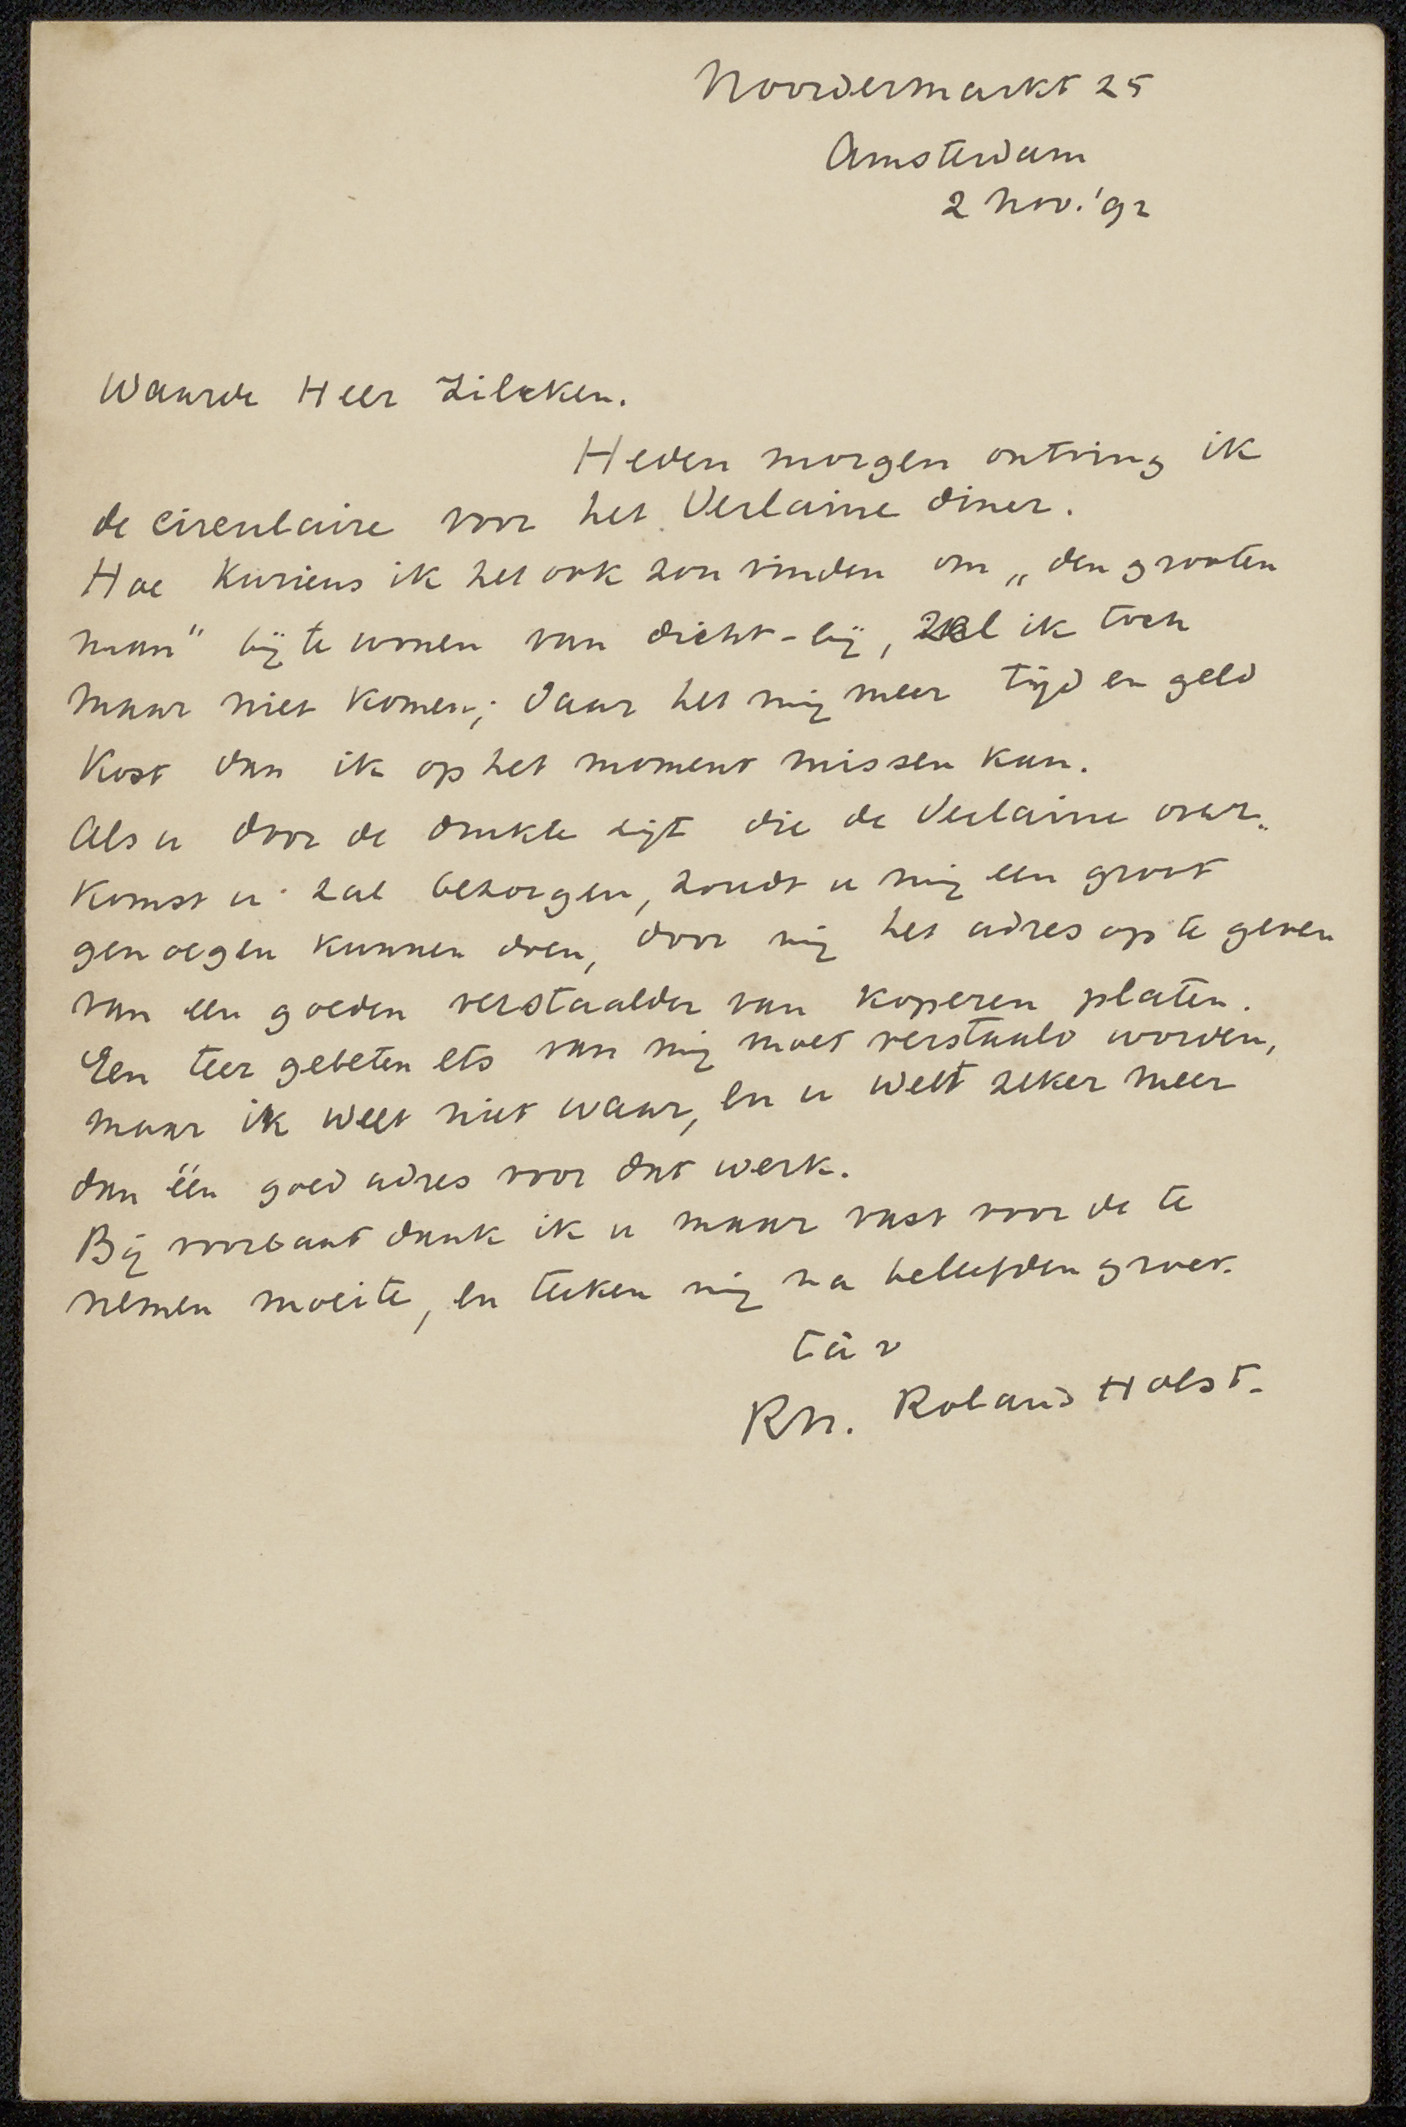 Noordermarkt 25
Amsterdam
2 Nov. '92
Waarde Heer Zilcken.
Heden morgen ontving ik
de circulaire voor het Verlaine diner.
Hoe kurieus ik het ook zou vinden om „den grooten
man" bij te wonen van dicht-bij, zal ik toch
maar niet komen; daar het mij meer tijd en geld
kost dan ik op het moment missen kan.
Als u door de drukte ligt die de Verlaine over-
komst u zal bezorgen, zoudt u mij een groot
genoegen kunnen doen, door mij het adres op te geven
van een goeden verstaalder van koperen platen.
Een teer gebeten ets van mij moet verstaald worden,
maar ik weet niet waar, en u weet zeker meer
dan één goed adres voor dat werk.
Bij voorbaat dank ik u maar vast voor de te
nemen moeite, en teeken mij na beleefden groet.
tàv
RN. Roland Holst.